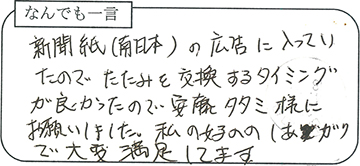 なんでも一言
新聞紙(南日本)の広告に入ってい
たので たたみを交換するタイミング
が良かったので安藤タタミ様に
お願いしました。私の好みの(あガリ
で大変満足してます